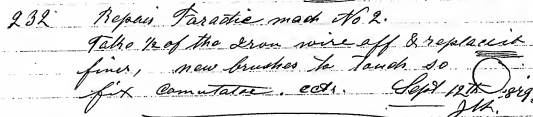 232 Repair Faradic mach No 2.
Take ½ of the iron wire off & replace it
finer, new brushes to touch so
fix comutator. Sept 12th